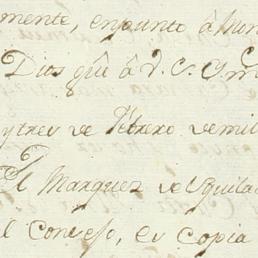 mente, en punto à
Dios guê â V. S. m.
y tres de Febrero de mil
El Marques de Squila
el Consejo, es copia